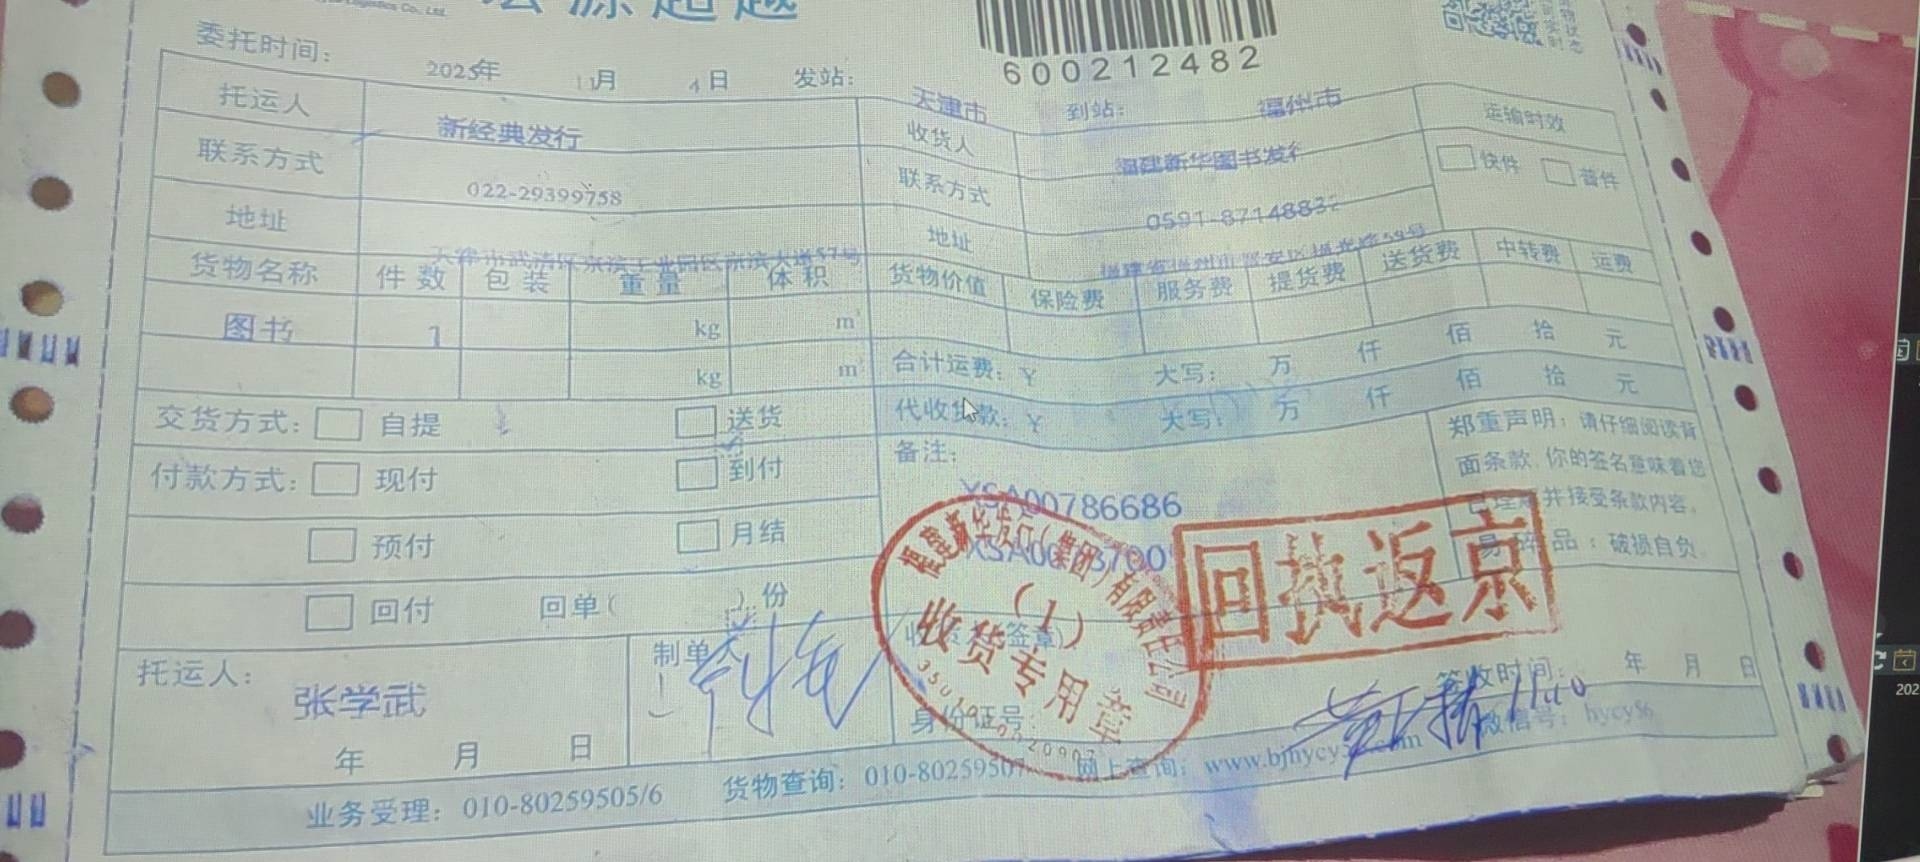 Logistics Co., Ltd.
宏源超越
600212482
委托时间： 2025年 11月 4日 发站： 天津市 到站： 福州市
托运人 新经典发行 收货人 福建新华图书发行 运输时效
联系方式 022-29399758 联系方式 0591-8714883 快件 普件
地址 天津市武清区京滨工业园区京滨大道57号 地址
货物名称 件数 包装 重量 体积 货物价值 保险费 服务费 提货费 送货费 中转费 运费
图书 1 kg m³
kg m³ 合计运费：￥ 大写： 万 仟 佰 拾 元
代收货款：￥ 大写： 万 仟 佰 拾 元
交货方式： 自提 送货 备注： 郑重声明：请仔细阅读背
付款方式： 现付 到付 面条款，你的签名意味着您
XSA00786686 已理解并接受条款内容。
预付 月结 易碎品：破损自负
回付 回单（ ）份
福建新华发行(集团)有限责任公司
(1)
收货专用章
回执返京
托运人： 张学武 制单人 收货人(签章)
签收时间： 年 月 日
身份证号：
微信号：hycy56
年 月 日
业务受理：010-80259505/6 货物查询：010-80259507 网上查询：www.bjhycy56.com